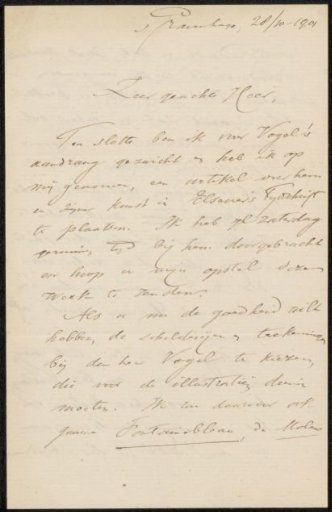 's Gravenhage, 28/10-1901
Zeer geachte Heer,
Ten slotte ben ik voor Vogel's
aandrang gezwicht en heb ik op
mij genomen, een artikel over hem
en zijne kunst in Elsevier's Tijdschrift
te plaatsen. Ik heb gl. Zaterdag
geruim, tijd bij hem doorgebracht
en hoop u mijn opstel deze
week te zenden.
Als u nu de goedheid wilt
hebben, de schilderijen en teekeningen
bij den heer Vogel te kiezen,
die voor de illustratie dienen
moeten. Ik zou daarvoor ook
gaarne Fontainebleau, de Molen